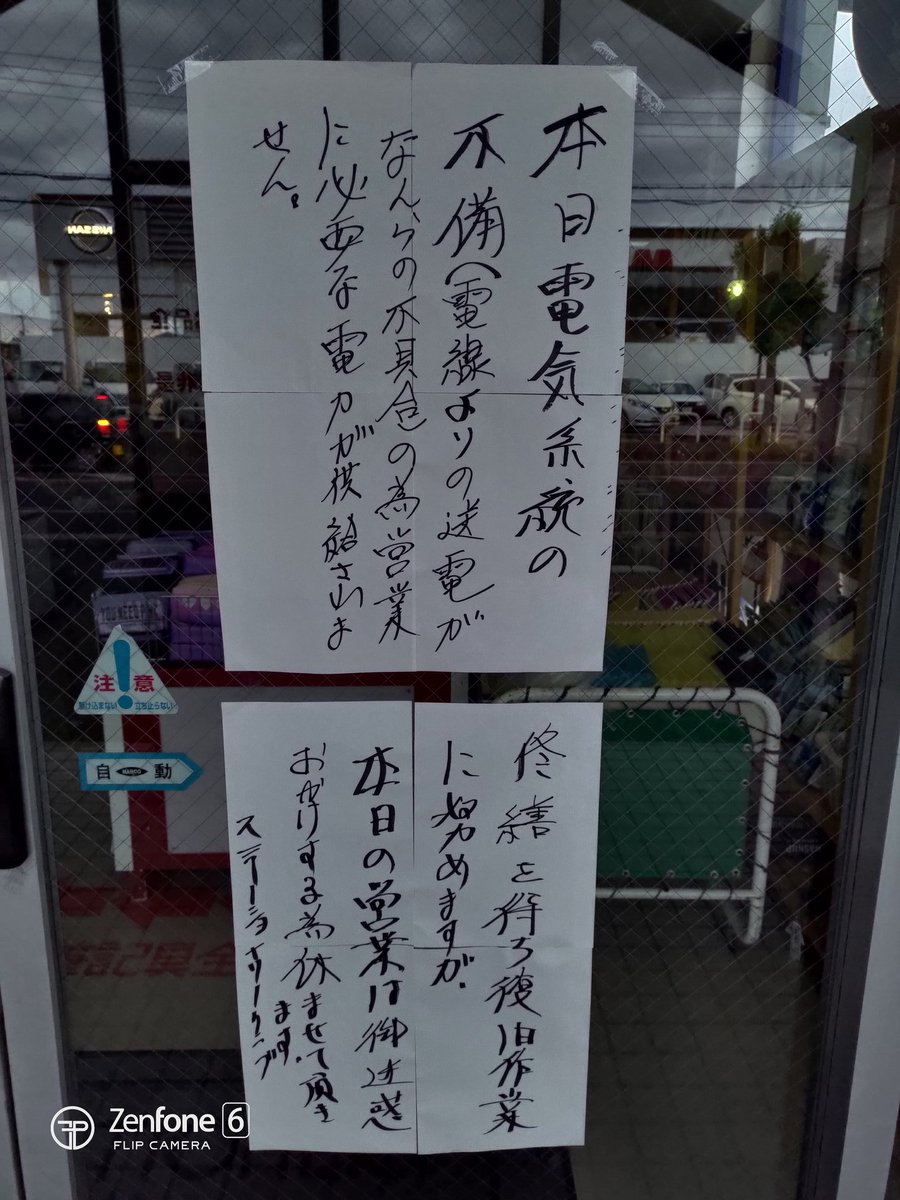 本日電気系統の
不備(電線よりの送電が
なんらの不具合の為営業
に必要な電力が供給されま
せん。
修繕を待ち復旧作業
に努めますが、
本日の営業は御迷惑
おかけする為休ませて頂き
ます。
ステーショナリークラブ
注意
駆け込まない 立ち止らない
自 NABCO 動
NISSAN
YOU NEED
Zenfone 6
FLIP CAMERA